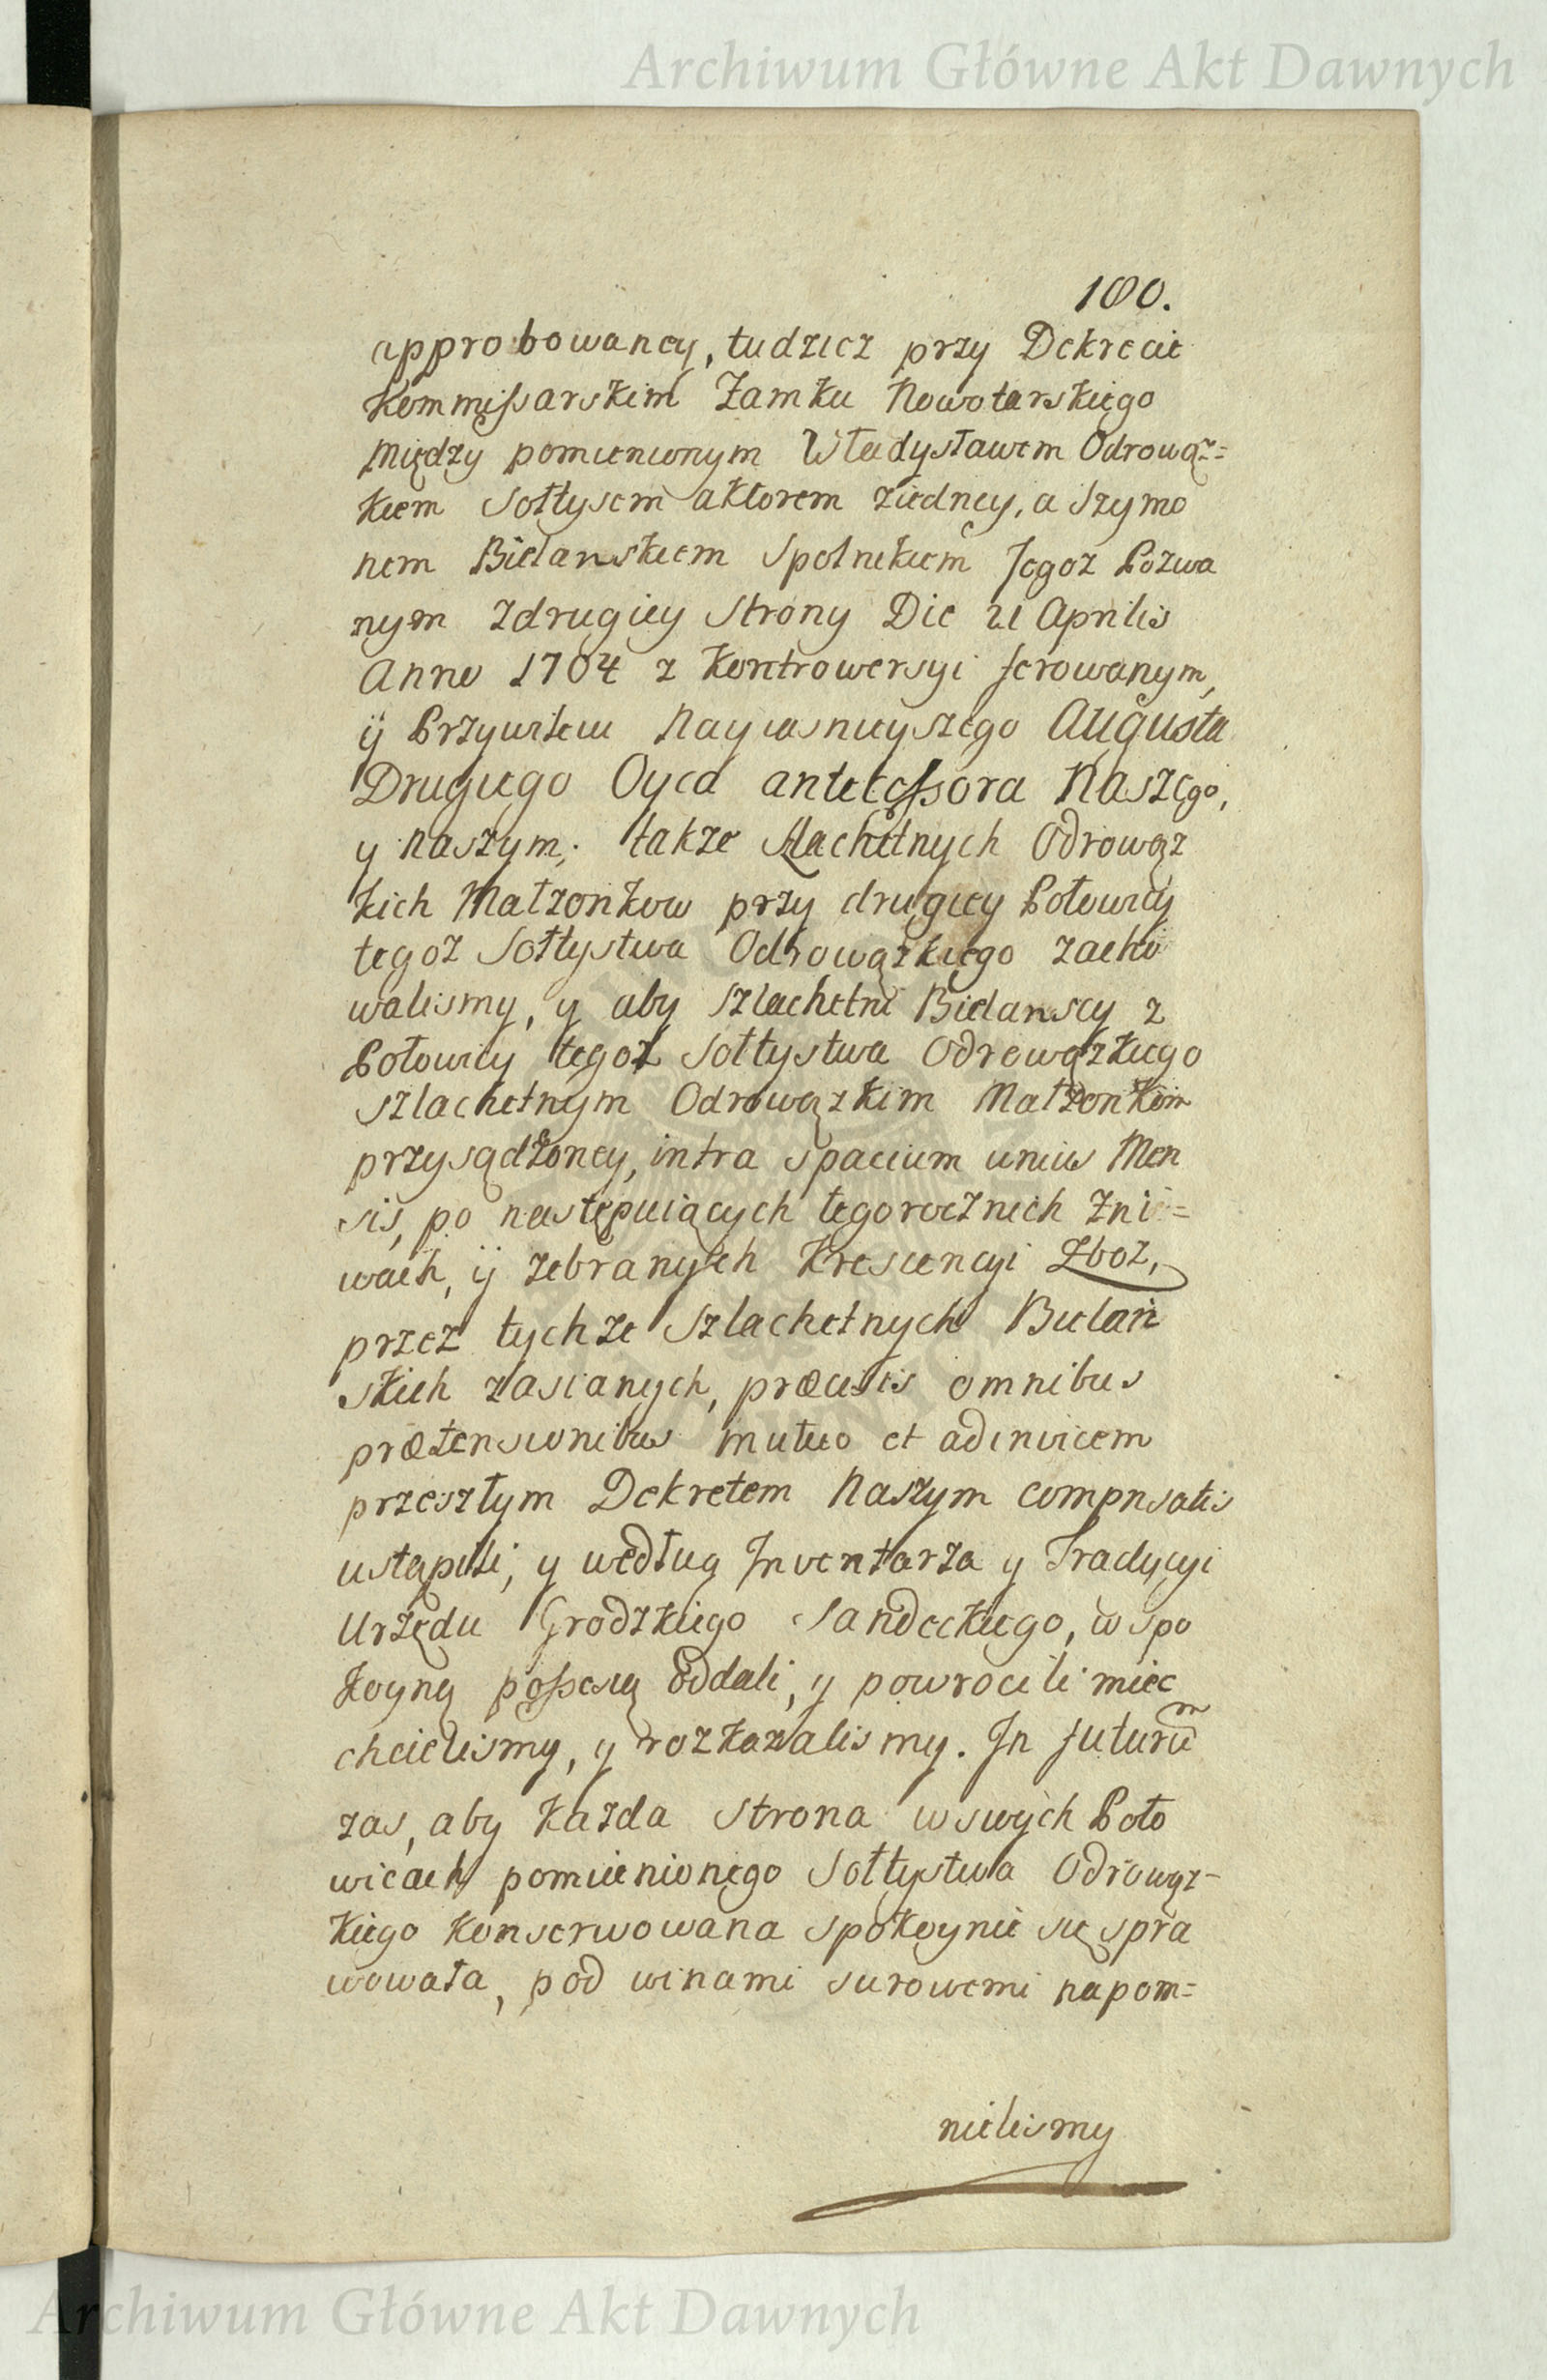 Archiwum Główne Akt Dawnych
100.
approbowaney, tudziez przy Dekrecie
Kommissarskim Zamku Nowotarskiego
między pomienionym Władysławem Odrowąz=
kiem Sołtysem aktorem ziedney, a Szymo
nem Bielanskiem Spolnikiem Jegoz Pozwa
nym zdrugiey Strony Die 21 Aprilis
Anno 1704 z Kontrowersyi ferowanym,
ÿ Przywileiu Nayiasnieyszego Augusta
Drugiego Oyca antecessora Naszego,
y naszym; także szlachetnych Odrowąz
kich Małzonkow przy drugiey Połowicy
tegoz Sołtystwa Odrowązkiego zacho
walismy, y aby Szlachetni Bielanscy z
Połowicy tegoz Sołtystwa Odrowązkiego
szlachetnym Odrowązkim Małzonkom
przysądzoney, intra spacium unius Men
sis, po następuiących tegorocznich Zni=
wach, ÿ zebranych Krescencyi Zboz,
przez tychze Szlachetnych Bielan
skich zasianych, præcisis omnibus
prætensionibus mutuo et adinvicem
przeszłym Dekretem Naszym compnsatis
ustąpili, y według Inventarza y Tradycyi
Urzędu Grodzkiego Sandeckiego, w spo
koyną possesią oddali, y powrocili miec
chcielismy, y rozkazalismy. In futurum
zas, aby kazda Strona w swych Poło
wicach pomienionego Sołtystwa Odrowąz-
kiego konserwowana spokoynie się spra
wowała, pod winami surowemi napom=
nielismy
Archiwum Główne Akt Dawnych